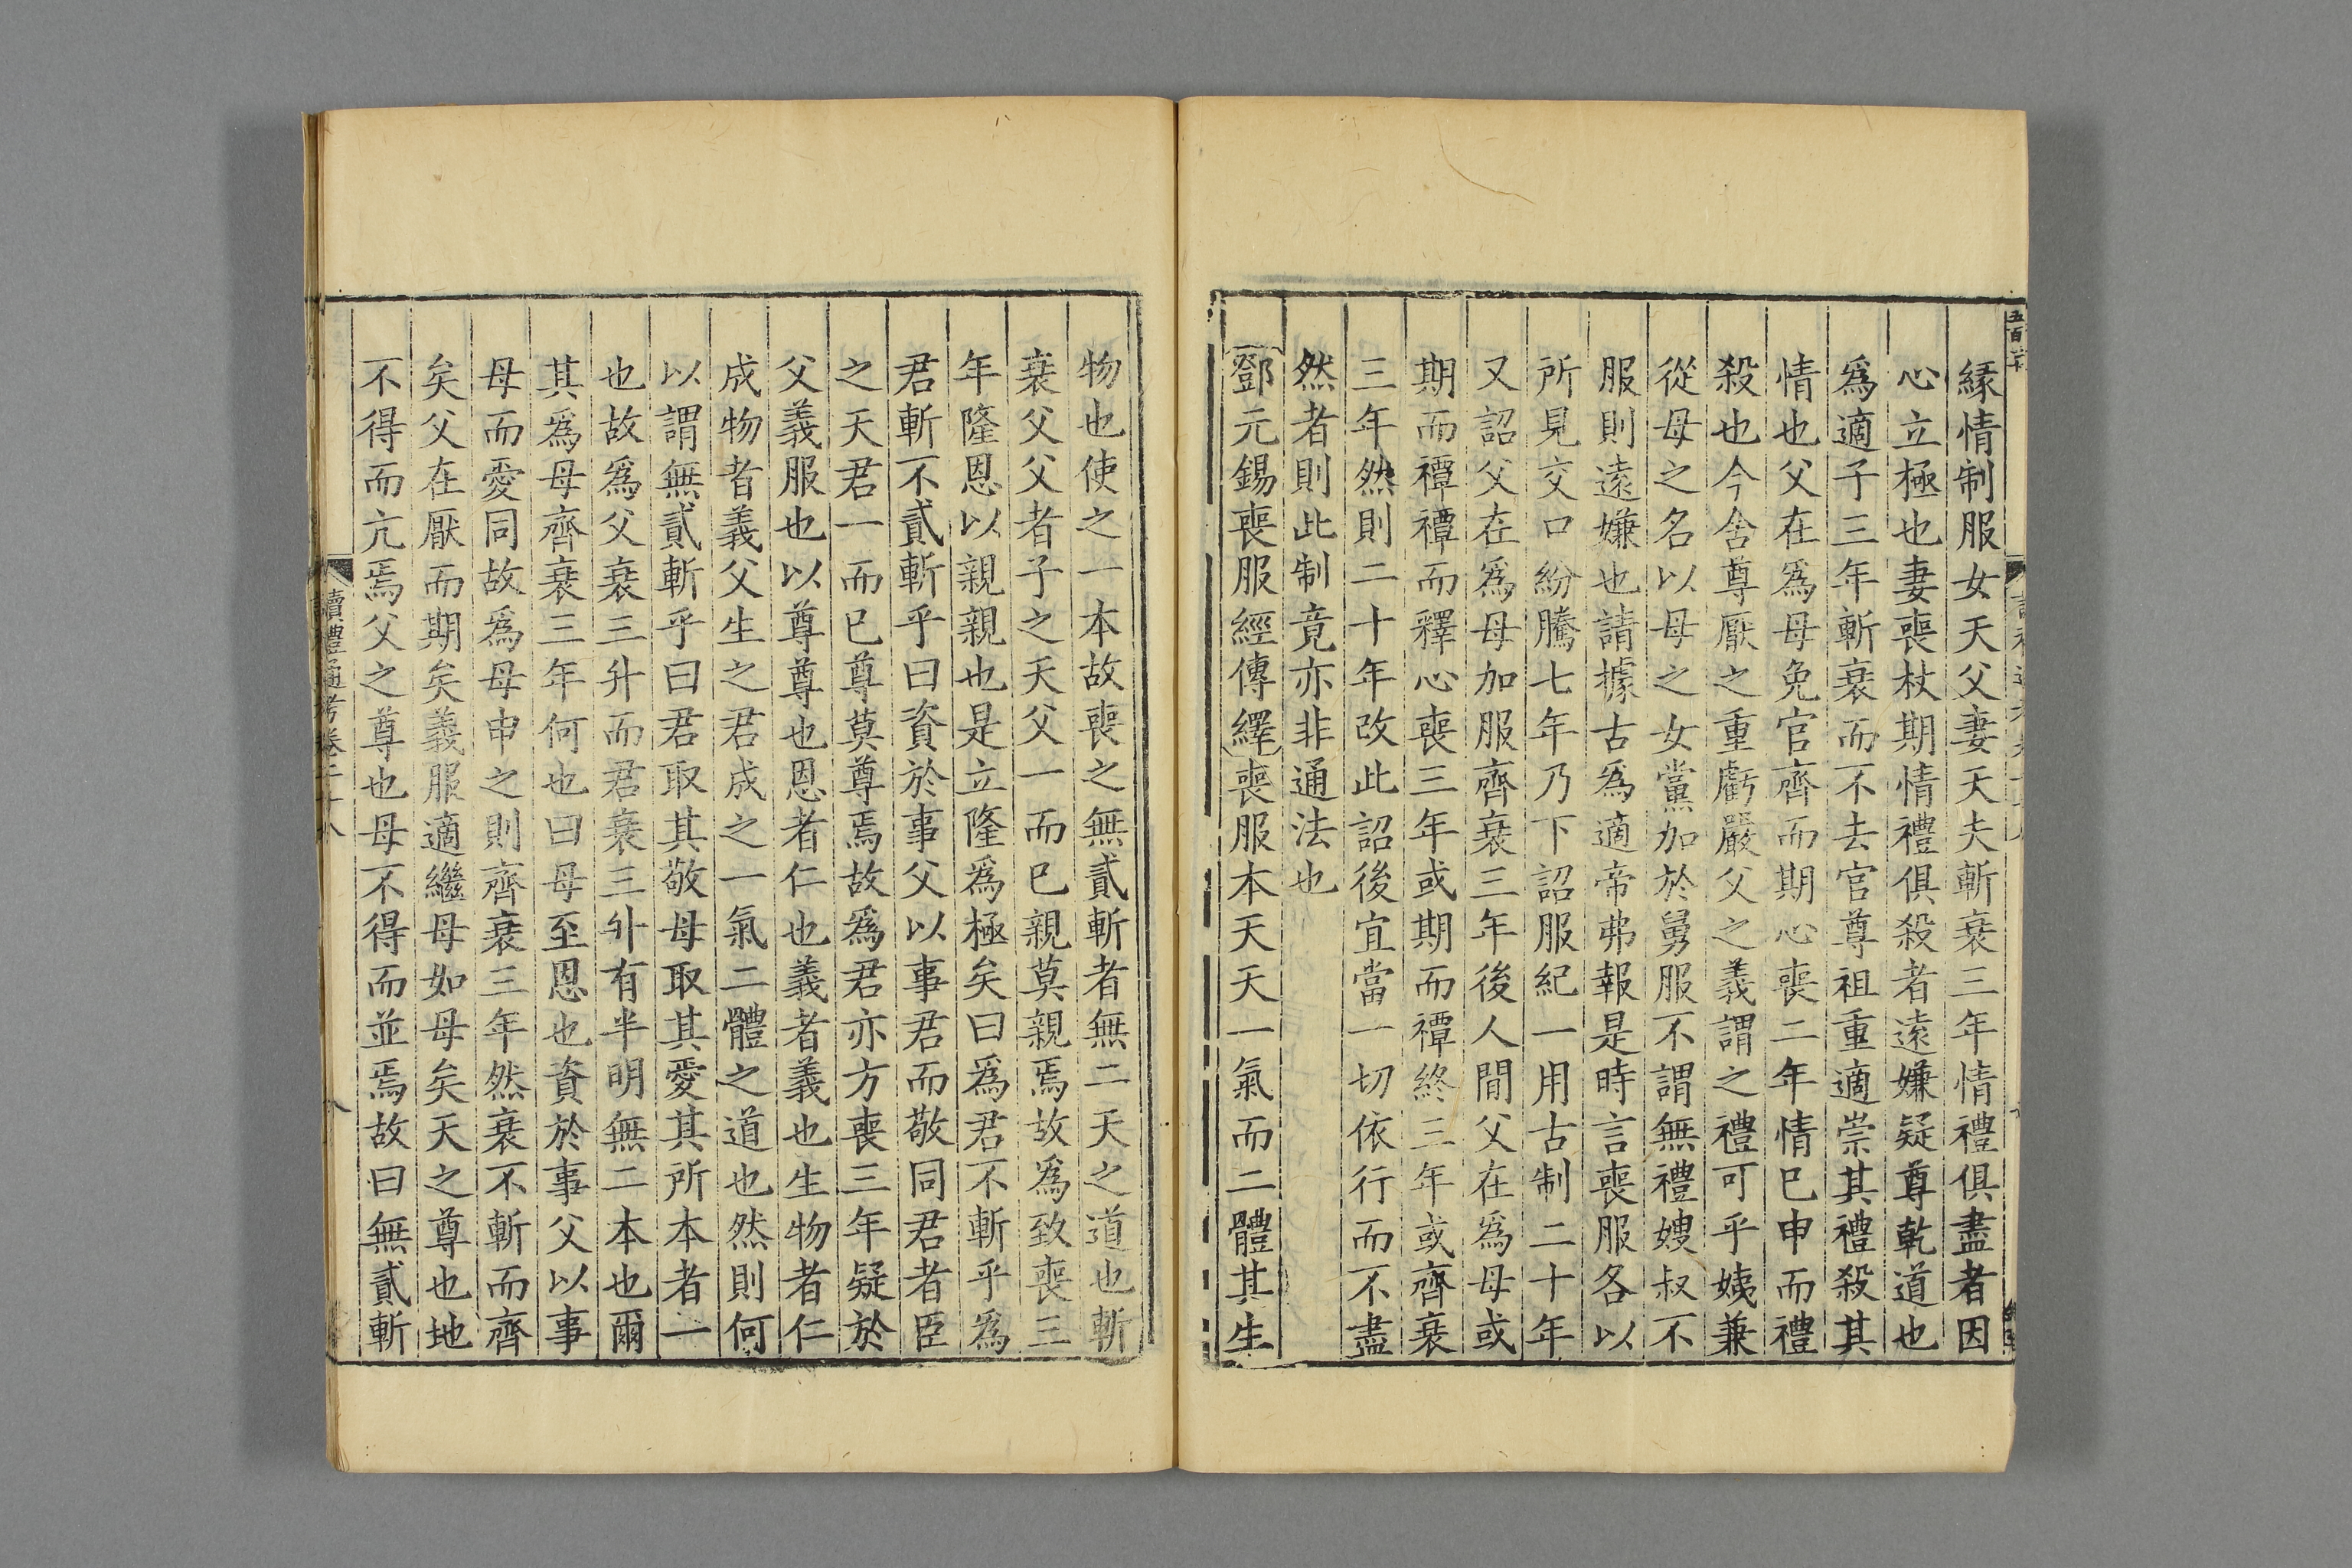 緣情制服女天父妻天夫斬衰三年情禮俱盡者因
心立極也妻喪杖期情禮俱殺者遠嫌疑尊乾道也
爲適子三年斬衰而不去官尊祖重適崇其禮殺其
情也父在爲母免官齊而期心喪二年情已申而禮
殺也今舍尊厭之重虧嚴父之義謂之禮可乎姨兼
從母之名以母之女黨加於舅服不謂無禮嫂叔不
服則遠嫌也請據古爲適帝弗報是時言喪服各以
所見交口紛騰七年乃下詔服紀一用古制二十年
又詔父在爲母加服齊衰三年後人間父在爲母或
期而禫禫而釋心喪三年或期而禫終三年或齊衰
三年然則二十年改此詔後宜當一切依行而不盡
然者則此制竟亦非通法也
鄧元錫喪服經傳繹喪服本天天一氣而二體其生
物也使之一本故喪之無貳斬者無二天之道也斬
衰父父者子之天父一而已親莫親焉故爲致喪三
年隆恩以親親也是立隆爲極矣曰爲君不斬乎爲
君斬不貳斬乎曰資於事父以事君而敬同君者臣
之天君一而已尊莫尊焉故爲君亦方喪三年疑於
父義服也以尊尊也恩者仁也義者義也生物者仁
成物者義父生之君成之一氣二體之道也然則何
以謂無貳斬乎曰君取其敬母取其愛其所本者一
也故爲父衰三升而君衰三升有半明無二本也爾
其爲母齊衰三年何也曰母至恩也資於事父以事
母而愛同故爲母申之則齊衰三年然衰不斬而齊
矣父在厭而期矣義服適繼母如母矣天之尊也地
不得而亢焉父之尊也母不得而並焉故曰無貳斬
讀禮通考卷二十八
八